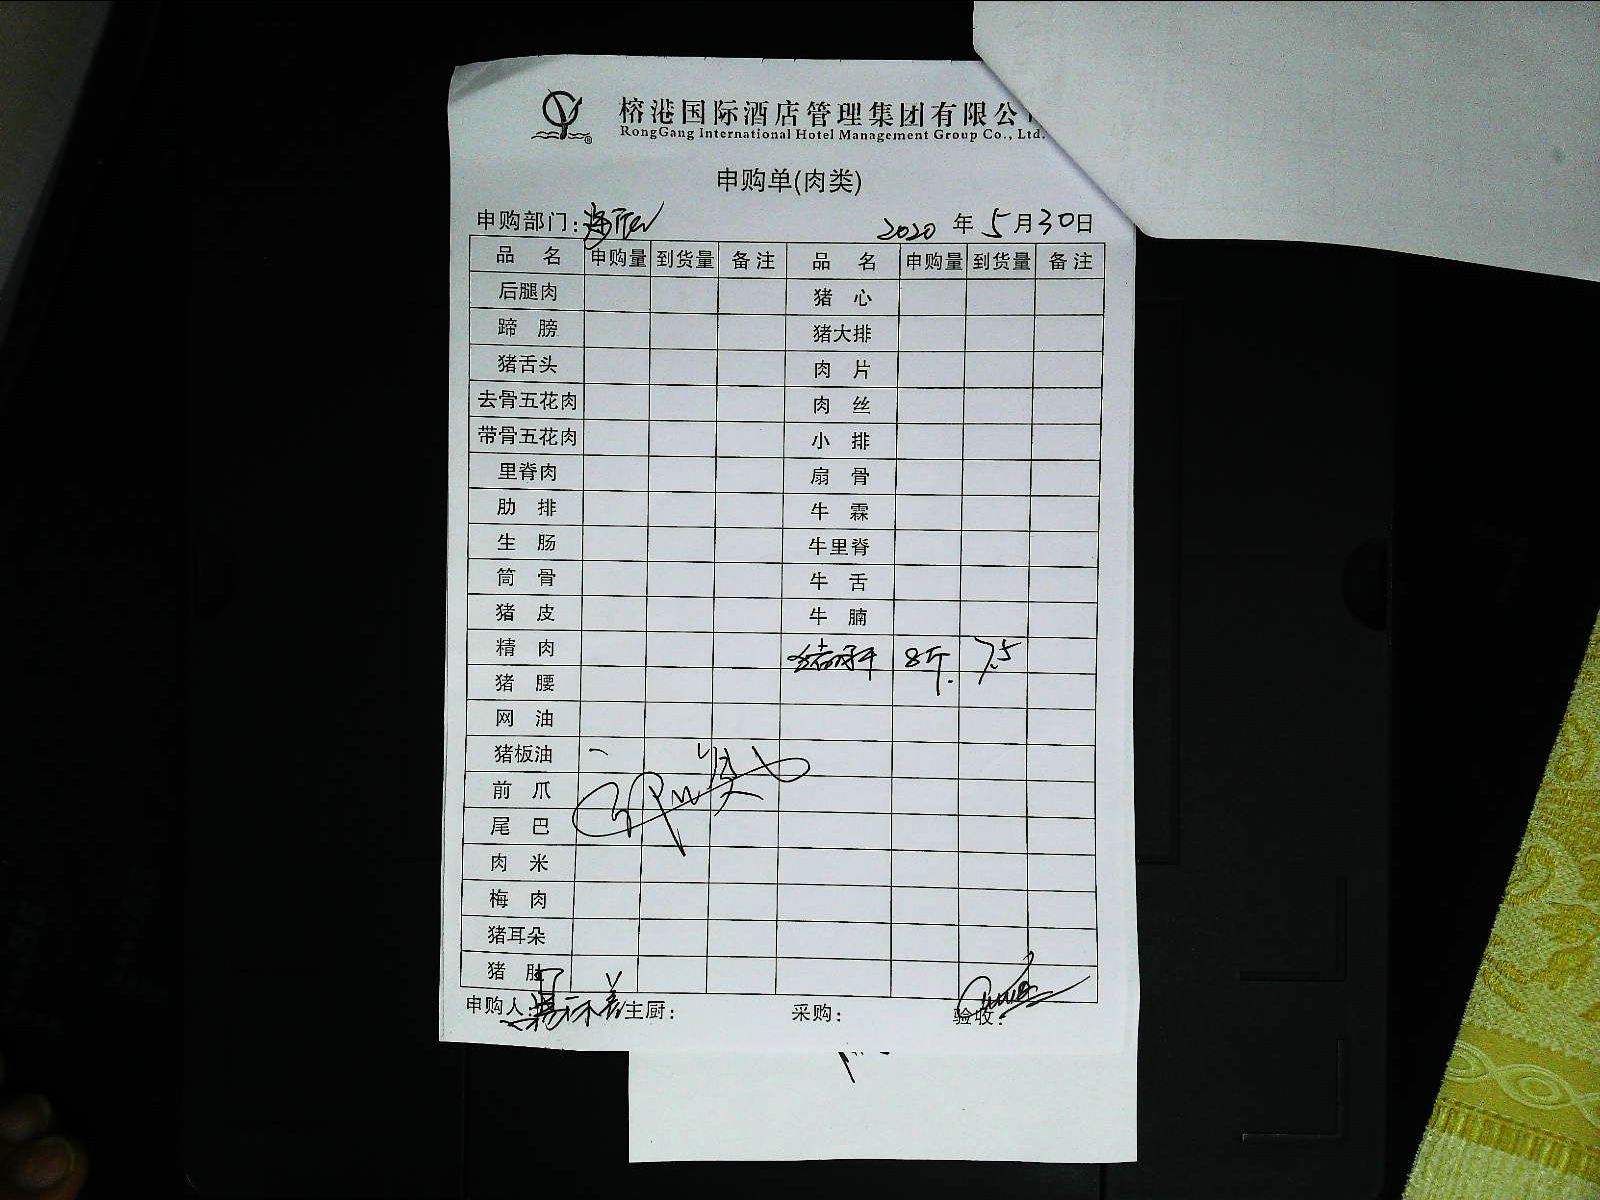 榕港国际酒店管理集团有限公
RongGang International Hotel Management Group Co., Ltd.
申购单(肉类)
申购部门: 2020 年 5 月 30 日
品 名 申购量 到货量 备注 品 名 申购量 到货量 备注
后腿肉 猪 心
蹄 膀 猪大排
猪舌头 肉 片
去骨五花肉 肉 丝
带骨五花肉 小 排
里脊肉 扇 骨
肋 排 牛 霖
生 肠 牛里脊
筒 骨 牛 舌
猪 皮 牛 腩
精 肉 猪肝 8斤. 7.5
猪 腰
网 油
猪板油
前 爪
尾 巴
肉 米
梅 肉
猪耳朵
猪 肚
申购人: 主厨: 采购: 验收: